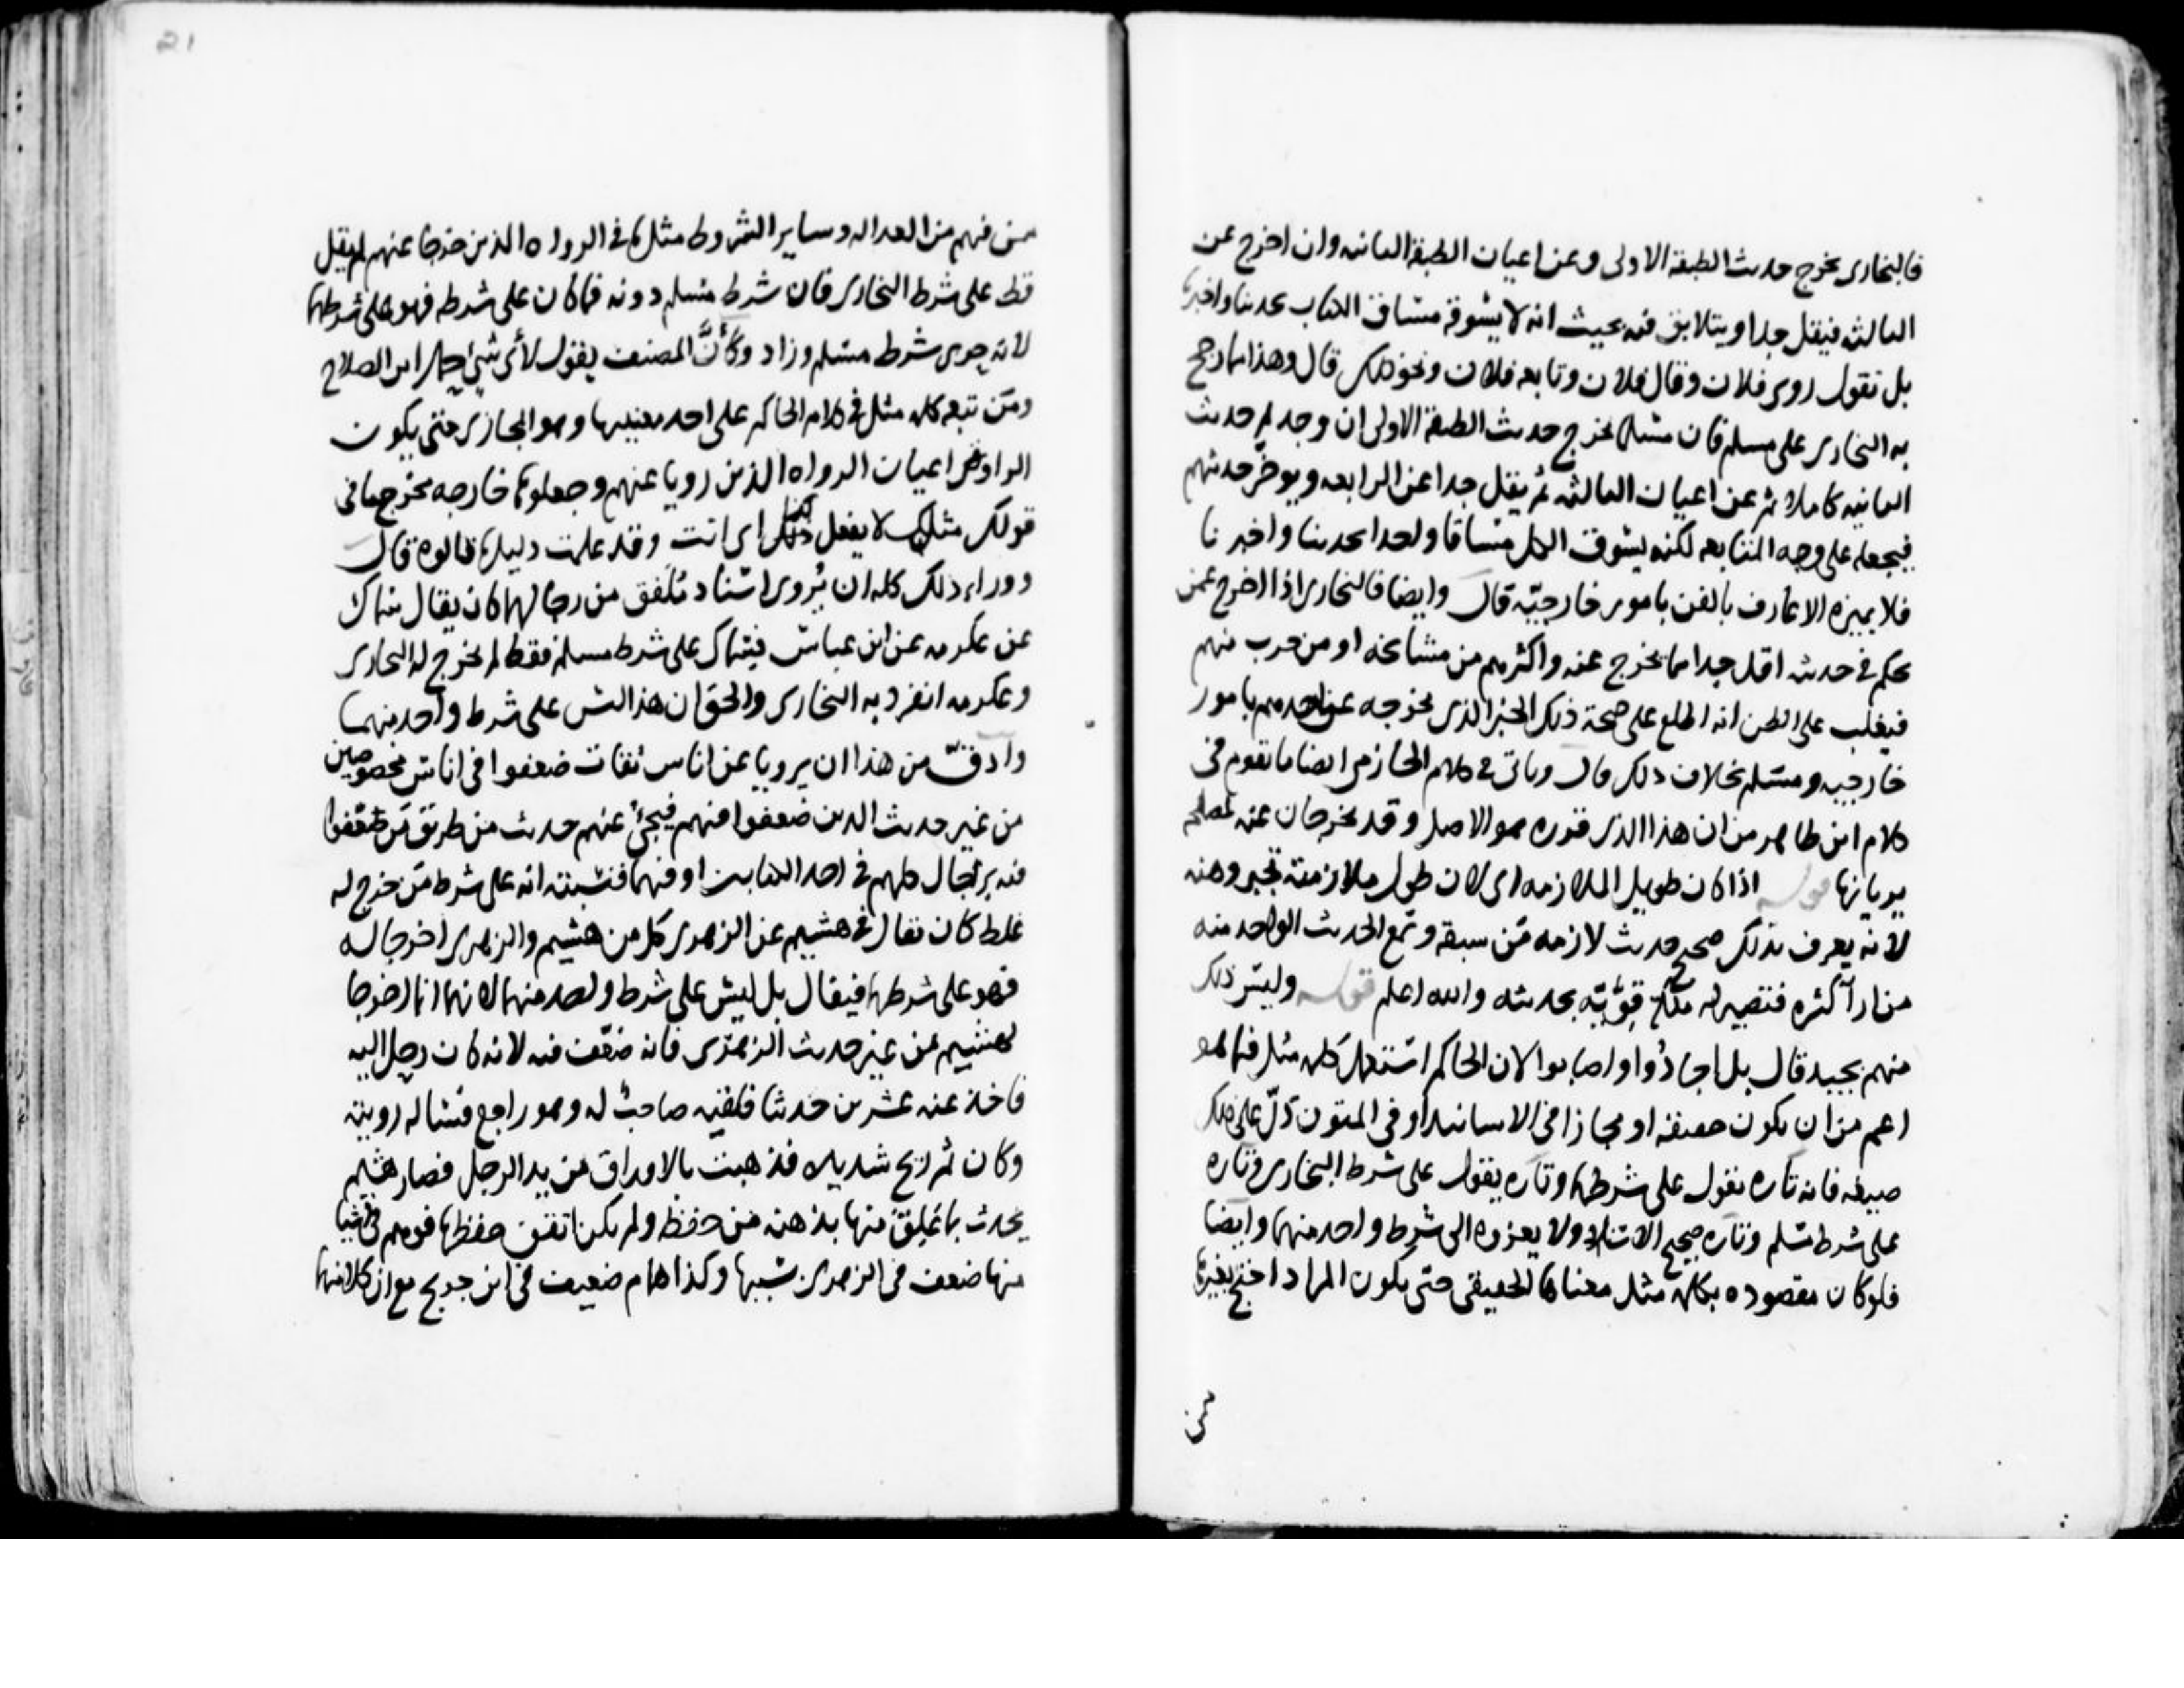 فالبخارى يخرج حديث الطبقة الاولى وعن اعيان الطبقة الثانيه وان اخرج عن
الثالثه فيقل جدا ويتلابق فيه بحيث انه لا يسوقه مساق الكتاب بحدثنا واخبرنا
بل تقول روى فلان وقال فلان وتابعه فلان ونحو ذلك قال وهذا مما رجح
به البخارى على مسلم فان مسلما يخرج حديث الطبقة الاولى ان وجد ثم حديث
الثانيه كاملا ثم عن اعيان الثالثه ثم يقل جدا عن الرابعه ويوخر حديثهم
فيجعله على وجه المتابعه لكنه يسوق الكل مساقا واحدا بحدثنا واخبرنا
فلا يميزه الا عارف بالفن بامور خارجيّه قال وايضا فالبخارى اذا اخرج عمن
تكلم في حديثه اقل جدا مما يخرج عنه واكثرهم من مشائخه او من قرب منهم
فيغلب على الظن انه اطلع على صحة ذلك الخبر الذى يخرجه عن احدهم بامور
خارجيه ومسلم بخلاف ذلك قال وياتى في كلام الحازمى ايضا ما تقوم في
كلام ابن طاهر من ان هذا الذى قرره هو الاصل وقد يخرجان عنه لمصلحه
يريانها قوله اذا كان طويل الملازمه اى لان طول ملازمته تجبر وهنه
لانه يعرف بذلك صحيح حديث لازمه ممن سبقه وتمع الحديث الواحد منه
مرارا كثره فتصير له ملكة قويّه بحديثه والله اعلم قوله وليس ذلك
منهم بجيد قال بل اجادوا واصابوا لان الحاكم استعمل كلمه مثل فيما هو
اعم من ان يكون حقيقه او مجازا في الاسانيد او في المتون دلّ على ذلك
صيغه فانه تاره يقول على شرطهما وتاره يقول على شرط البخارى وتاره
على شرط مسلم وتاره صحيح الاسناد ولا يعزوه الى شرط واحد منهما وايضا
فلو كان مقصوده بكلمه مثل معناها الحقيقى حتى يكون المراد احتج بغيرها
من
21
ممن فيهم من العداله وساير الشروط مثل ما في الرواه الذين خرجا عنهم لم يقل
قط على شرط البخارى فان شرط مسلم دونه فما كان على شرطه فهو على شرطهما
لانه حوى شرط مسلم وزاد وكأنّ المصنف يقول لأى شئ حمل ابن الصلاح
ومن تبعه كلمه مثل في كلام الحاكم على احد معنييها وهو المجازى حتى يكون
الراوى من اعيان الرواه الذين رويا عنهم وجعلوها خارجه مخرج ما في
قولك مثلك لا يفعل كذا اى انت وقد علمت دليل ما قالوه قال
ووراء ذلك كله ان يُروى اسناد مُلَفق من رجالهما كان يقال سماك
عن عكرمه عن ابن عباس فسماك على شرط مسلم فقط لم يخرج له البخارى
وعكرمه انفرد به البخارى والحق ان هذا ليس على شرط واحد منهما
وادقّ من هذا ان يرويا عن اناس ثقات ضعفوا في اناس مخصوصين
من غير حديث الذين ضعفوا فيهم فيجئ عنهم حديث من طريق من ضعّفوا
فيه برجال كلهم في احد الكتابين او فيهما فنسبته انه على شرط من خرج له
غلط كان يقال في هشيم عن الزهرى كل من هشيم والزهرى اخرجا له
فهو على شرطهما فيقال بل ليس على شرط واحد منهما لانهما انما اخرجا
لهشيم من غير حديث الزهرى فانه ضعّف فيه لانه كان رحل اليه
فاخذ عنه عشرين حديثا فلقيه صاحبٌ له وهو راجع فساله رويته
وكان ثم ريح شديده فذهبت بالاوراق من يد الرجل فصار هشيم
يحدث بما علق منها بذهنه من حفظه ولم يكن اتقن حفظها فوهم في اشيا
منها ضعف في الزهرى بسببها وكذا همام ضعيف في ابن جريج مع ان كلا منهما